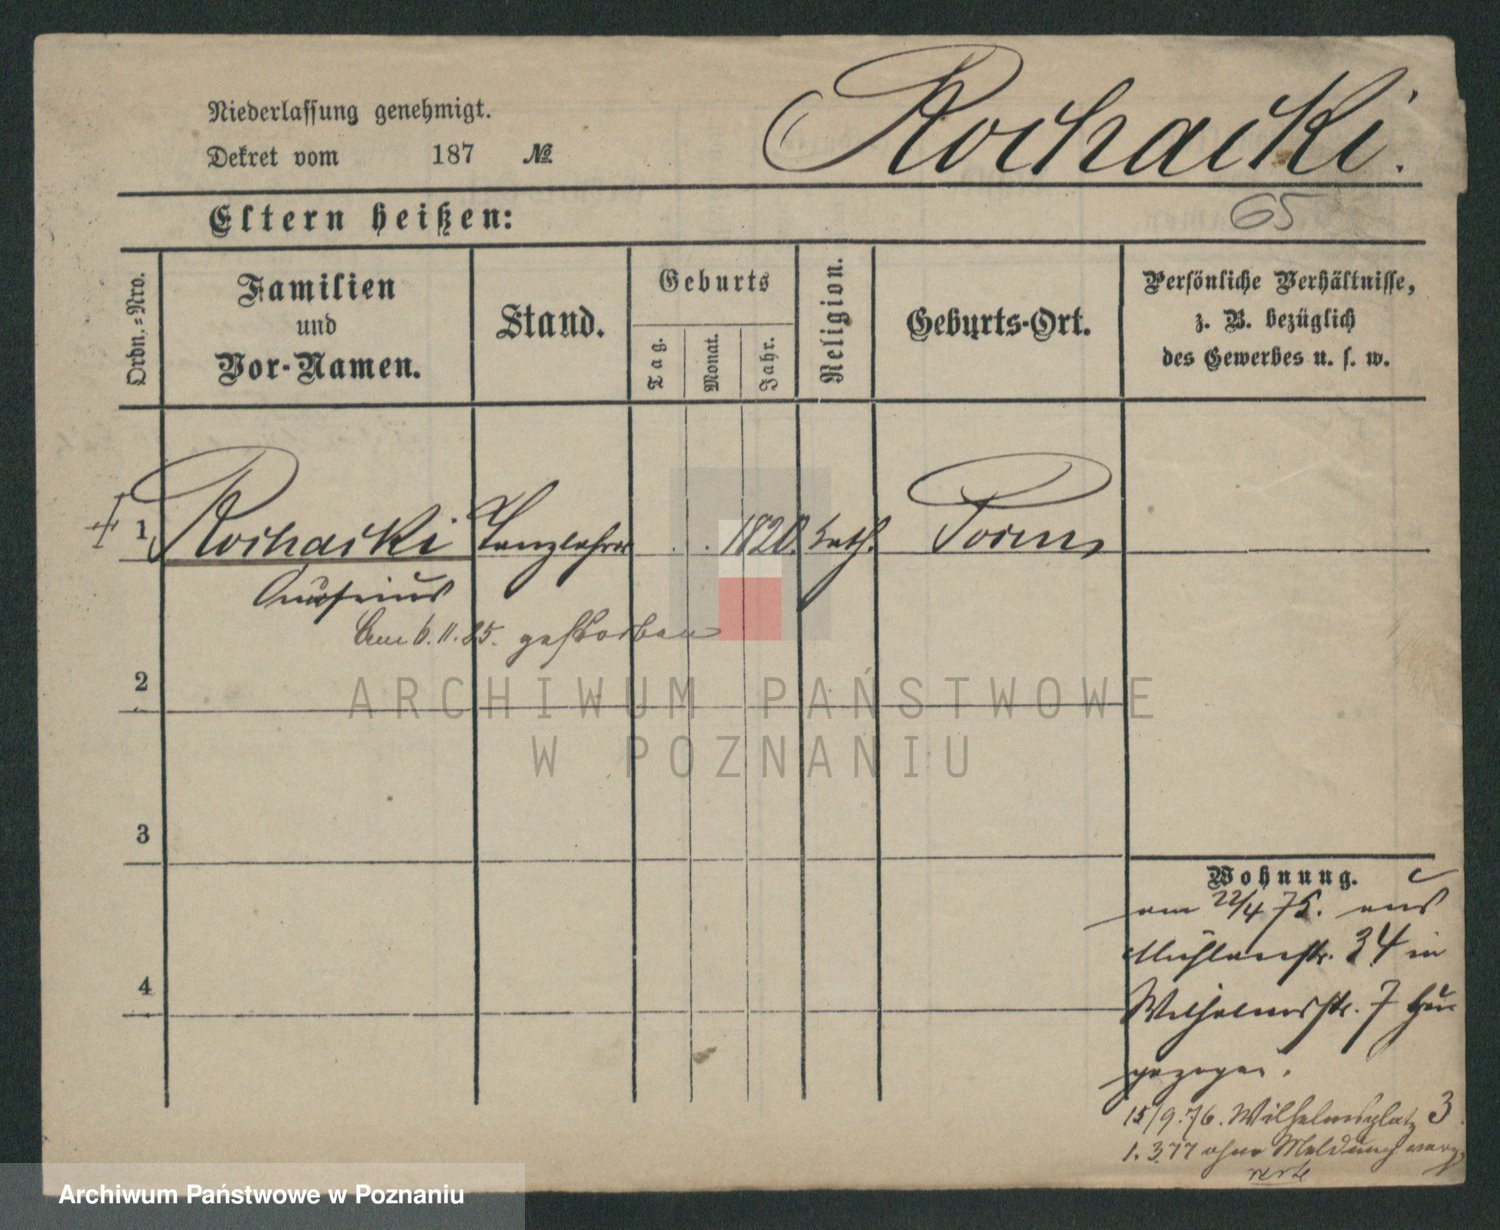 Niederlassung genehmigt.
Dekret vom 187 №
Rochacki.
65
Eltern heißen:
Ordn.-Nro.
Familien
und
Vor-Namen.
Stand.
Geburts
Tag.
Monat.
Jahr.
Religion.
Geburts-Ort.
Persönliche Verhältnisse,
z. B. bezüglich
des Gewerbes u. s. w.
1 Rochacki Tanzlehrer 1820. kath. Posen
Am 6.11.85. gestorben
2
ARCHIWUM PAŃSTWOWE
W POZNANIU
3
4
Wohnung.
am 22/4 75. aus
Mühlenstr. 34 in
Wilhelmsstr. 7
gezogen.
15/9.76. Wilhelmsplatz 3
1.3.77 ohne Meldung verz.
Archiwum Państwowe w Poznaniu